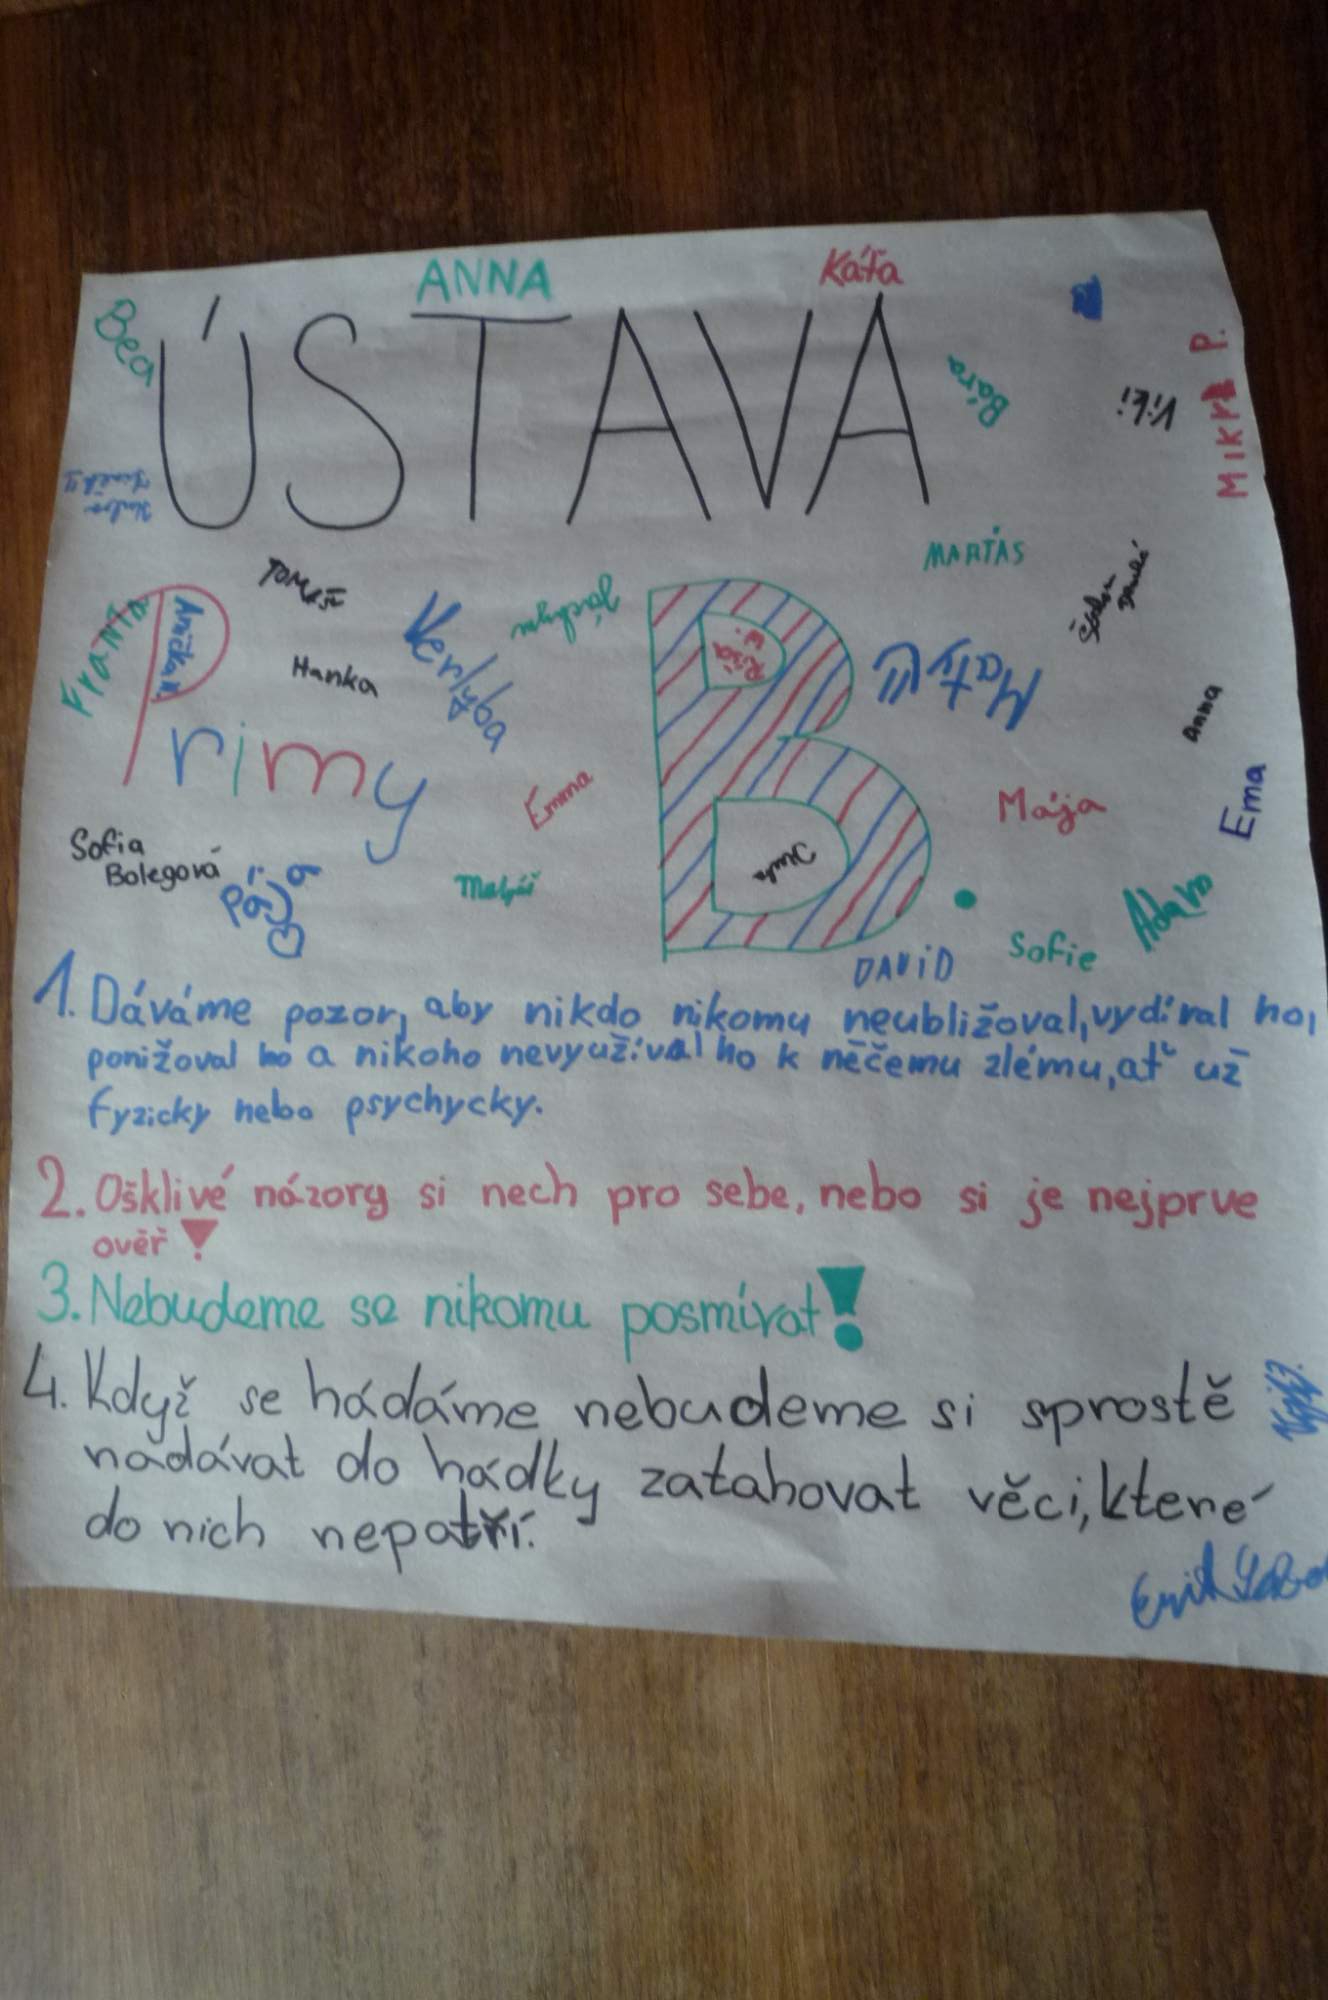 ANNA
Káťa
Bea
ÚSTAVA
Bára
Viki
MIKI P.
MARŤAS
FRANTA
Anička K.
TOMÁŠ
Jáchym
Hanka
Verlyba
Primy
B
Matyáš
Anna
Emma
Mája
Ema
Sofia
Bolegová
Pája
Matyáš
Adam
Sofie
DAViD
1. Dáváme pozor, aby nikdo nikomu neubližoval, vydíral ho,
ponižoval ho a nikoho nevyužíval ho k něčemu zlému, ať už
fyzicky nebo psychycky.
2. Ošklivé názory si nech pro sebe, nebo si je nejprve
ověř!
3. Nebudeme se nikomu posmívat!
4. Když se hádáme nebudeme si sprostě
nadávat do hádky zatahovat věci, které
do nich nepatří.